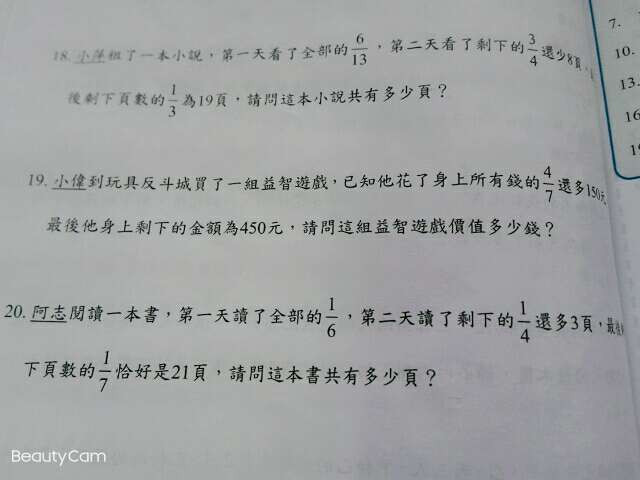 7.
10.
13.
16
19
18. 小萍租了一本小說，第一天看了全部的6/13，第二天看了剩下的3/4還少8頁，
後剩下頁數的1/3為19頁，請問這本小說共有多少頁？
19. 小偉到玩具反斗城買了一組益智遊戲，已知他花了身上所有錢的4/7還多150元
最後他身上剩下的金額為450元，請問這組益智遊戲價值多少錢？
20. 阿志閱讀一本書，第一天讀了全部的1/6，第二天讀了剩下的1/4還多3頁，最後
下頁數的1/7恰好是21頁，請問這本書共有多少頁？
BeautyCam